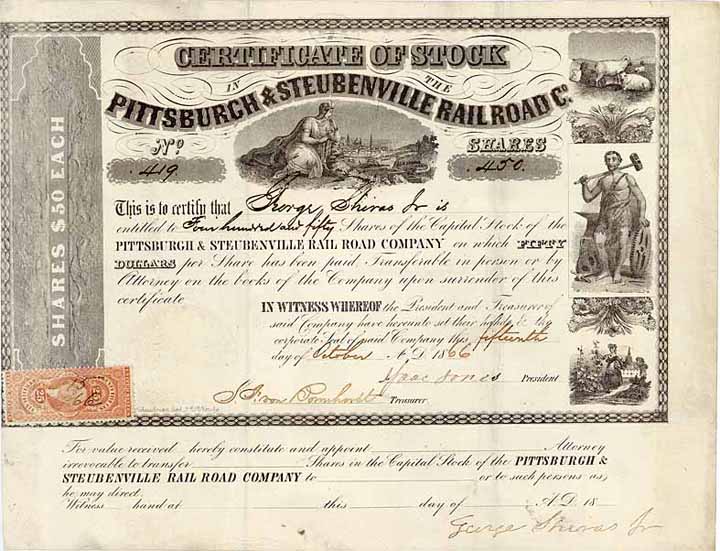 CERTIFICATE OF STOCK
IN THE
PITTSBURGH & STEUBENVILLE RAIL ROAD Co.
No SHARES
419 450
SHARES $50 EACH
This is to certify that George Shiras Jr is
entitled to Four hundred and fifty Shares of the Capital Stock of the
PITTSBURGH & STEUBENVILLE RAIL ROAD COMPANY on which FIFTY
DOLLARS per Share has been paid. Transferable in person or by
Attorney on the books of the Company upon surrender of this
certificate
IN WITNESS WHEREOF the President and Treasurer of
said Company have hereunto set their names & the
corporate Seal of said Company this fifteenth
day of October A.D. 1866
Isaac Jones President
S. F. von Bonnhorst Treasurer
25
For value received hereby constitute and appoint Attorney
irrevocable to transfer Shares in the Capital Stock of the PITTSBURGH &
STEUBENVILLE RAIL ROAD COMPANY to or to such persons as,
he may direct.
Witness hand at this day of A.D. 18
George Shiras Jr